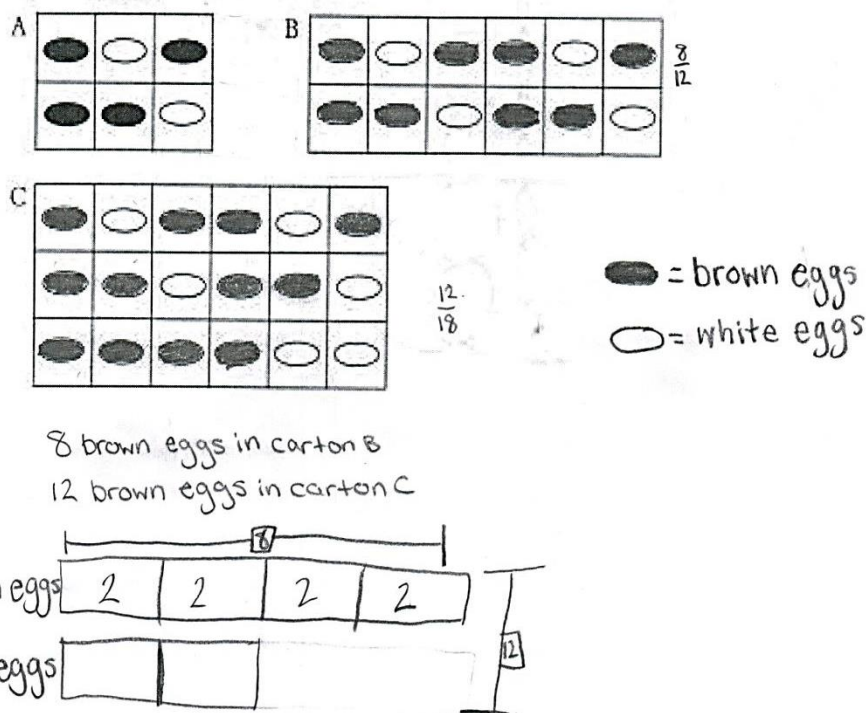 A
B
8
12
C
12
18
= brown eggs
= white eggs
8 brown eggs in carton B
12 brown eggs in carton C
8
eggs 2 2 2 2
12
eggs